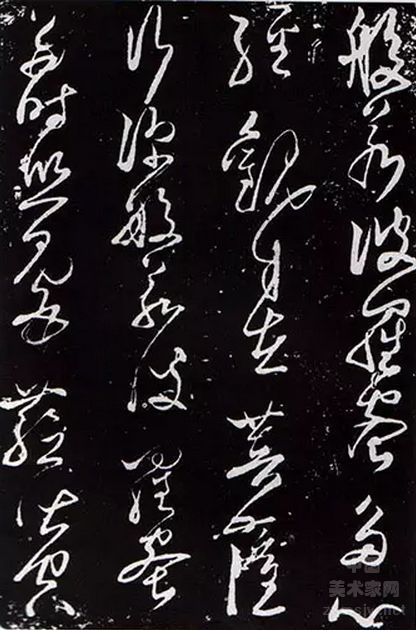 般若波羅蜜多心
經觀自在菩薩
行深般若波羅蜜
多時照見五蘊皆空
中国
美术家网